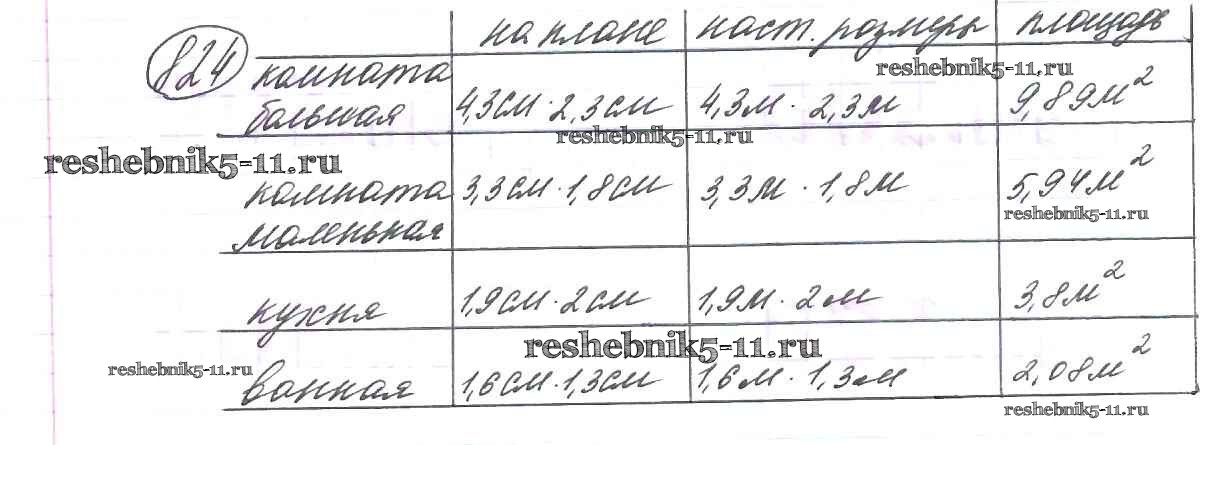 824
на плане наст. размеры площадь
reshebnik5-11.ru
комната
большая 4,3см · 2,3см 4,3м · 2,3м 9,89м²
reshebnik5-11.ru
reshebnik5-11.ru
комната 3,3см · 1,8см 3,3м · 1,8м 5,94м²
reshebnik5-11.ru
маленькая
кухня 1,9см · 2см 1,9м · 2м 3,8м²
reshebnik5-11.ru
reshebnik5-11.ru
ванная 1,6см · 1,3см 1,6м · 1,3м 2,08м²
reshebnik5-11.ru